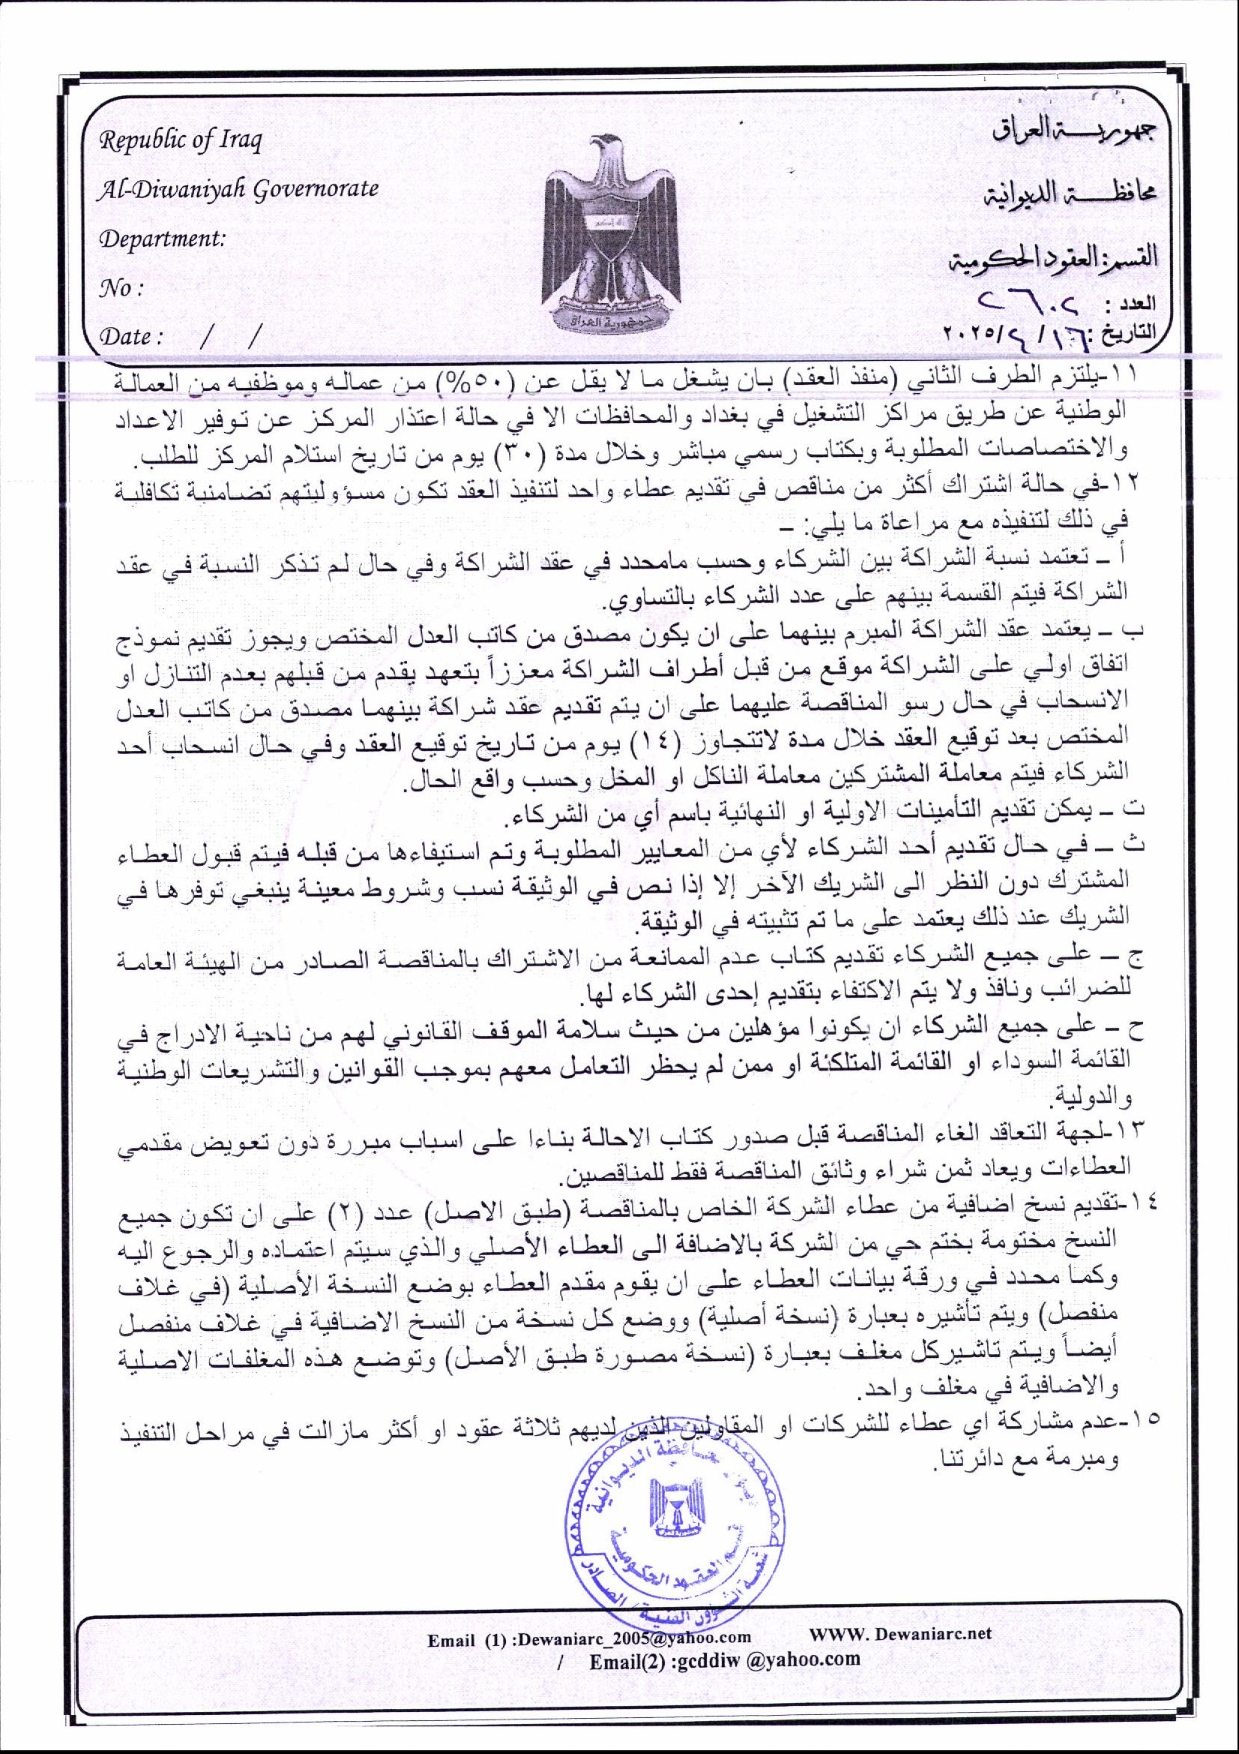 Republic of Iraq
Al-Diwaniyah Governorate
Department:
No :
Date : / /
جمهورية العراق
محافظة الديوانية
القسم: العقود الحكومية
العدد : ٢٦٠٢
التاريخ : ١٦/ ٤/ ٢٠٢٥
جمهورية العراق
١١-يلتزم الطرف الثاني (منفذ العقد) بان يشغل ما لا يقل عن (٥٠%) من عماله وموظفيه من العمالة
الوطنية عن طريق مراكز التشغيل في بغداد والمحافظات الا في حالة اعتذار المركز عن توفير الاعداد
والاختصاصات المطلوبة وبكتاب رسمي مباشر وخلال مدة (٣٠) يوم من تاريخ استلام المركز للطلب.
١٢-في حالة اشتراك أكثر من مناقص في تقديم عطاء واحد لتنفيذ العقد تكون مسؤوليتهم تضامنية تكافلية
في ذلك لتنفيذه مع مراعاة ما يلي: –
أ – تعتمد نسبة الشراكة بين الشركاء وحسب مامحدد في عقد الشراكة وفي حال لم تذكر النسبة في عقد
الشراكة فيتم القسمة بينهم على عدد الشركاء بالتساوي.
ب – يعتمد عقد الشراكة المبرم بينهما على ان يكون مصدق من كاتب العدل المختص ويجوز تقديم نموذج
اتفاق اولي على الشراكة موقع من قبل أطراف الشراكة معززاً بتعهد يقدم من قبلهم بعدم التنازل او
الانسحاب في حال رسو المناقصة عليهما على ان يتم تقديم عقد شراكة بينهما مصدق من كاتب العدل
المختص بعد توقيع العقد خلال مدة لاتتجاوز (١٤) يوم من تاريخ توقيع العقد وفي حال انسحاب أحد
الشركاء فيتم معاملة المشتركين معاملة الناكل او المخل وحسب واقع الحال.
ت – يمكن تقديم التأمينات الاولية او النهائية باسم أي من الشركاء.
ث – في حال تقديم أحد الشركاء لأي من المعايير المطلوبة وتم استيفاءها من قبله فيتم قبول العطاء
المشترك دون النظر الى الشريك الآخر إلا إذا نص في الوثيقة نسب وشروط معينة ينبغي توفرها في
الشريك عند ذلك يعتمد على ما تم تثبيته في الوثيقة.
ج – على جميع الشركاء تقديم كتاب عدم الممانعة من الاشتراك بالمناقصة الصادر من الهيئة العامة
للضرائب ونافذ ولا يتم الاكتفاء بتقديم إحدى الشركاء لها.
ح – على جميع الشركاء ان يكونوا مؤهلين من حيث سلامة الموقف القانوني لهم من ناحية الادراج في
القائمة السوداء او القائمة المتلكئة او ممن لم يحظر التعامل معهم بموجب القوانين والتشريعات الوطنية
والدولية.
١٣-لجهة التعاقد الغاء المناقصة قبل صدور كتاب الاحالة بناءا على اسباب مبررة دون تعويض مقدمي
العطاءات ويعاد ثمن شراء وثائق المناقصة فقط للمناقصين.
١٤-تقديم نسخ اضافية من عطاء الشركة الخاص بالمناقصة (طبق الاصل) عدد (٢) على ان تكون جميع
النسخ مختومة بختم حي من الشركة بالاضافة الى العطاء الأصلي والذي سيتم اعتماده والرجوع اليه
وكما محدد في ورقة بيانات العطاء على ان يقوم مقدم العطاء بوضع النسخة الأصلية (في غلاف
منفصل) ويتم تأشيره بعبارة (نسخة أصلية) ووضع كل نسخة من النسخ الاضافية في غلاف منفصل
أيضاً ويتم تاشيركل مغلف بعبارة (نسخة مصورة طبق الأصل) وتوضع هذه المغلفات الاصلية
والاضافية في مغلف واحد.
١٥-عدم مشاركة اي عطاء للشركات او المقاولين الذين لديهم ثلاثة عقود او أكثر مازالت في مراحل التنفيذ
ومبرمة مع دائرتنا.
محافظة الديوانية
قسم العقود الحكومية
شعبة الشؤون الفنية / الصادر
Email (1) :Dewaniarc_2005@yahoo.com WWW. Dewaniarc.net
/ Email(2) :gcddiw @yahoo.com